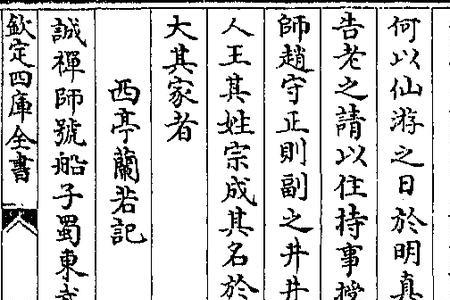 何以仙游之日於明真
告老之請以住持事授
師趙守正則副之井井
人王其姓宗成其名於
大其家者
西亭蘭若記
誠禪師號船子蜀東武
欽定四庫全書